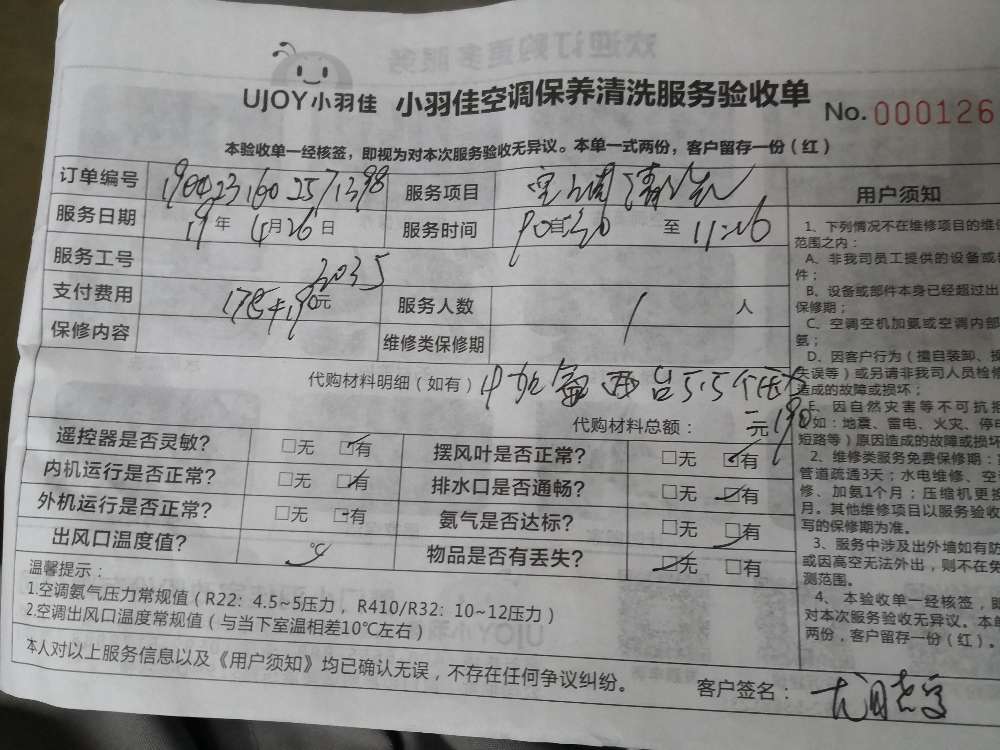 UJOY小羽佳 小羽佳空调保养清洗服务验收单 No. 000126
本验收单一经核签，即视为对本次服务验收无异议。本单一式两份，客户留存一份（红）
订单编号 服务项目
服务日期 19年 4月26日 服务时间 至 11:16
服务工号 2035
支付费用 元 服务人数 1 人
保修内容 维修类保修期
代购材料明细（如有）
代购材料总额： 元 190
遥控器是否灵敏？ □无 □有 摆风叶是否正常？ □无 □有
内机运行是否正常？ □无 □有 排水口是否通畅？ □无 □有
外机运行是否正常？ □无 □有 氨气是否达标？ □无 □有
出风口温度值？ ℃ 物品是否有丢失？ □无 □有
温馨提示：
1.空调氨气压力常规值（R22：4.5~5压力，R410/R32：10~12压力）
2.空调出风口温度常规值（与当下室温相差10℃左右）
本人对以上服务信息以及《用户须知》均已确认无误，不存在任何争议纠纷。
客户签名：
用户须知
1、下列情况不在维修项目的维
范围之内：
A、非我司员工提供的设备或
件；
B、设备或部件本身已经超过出
保修期；
C、空调空机加氨或空调内部
氨；
D、因客户行为（擅自装卸、
失误等）或另请非我司人员检
造成的故障或损坏；
E、因自然灾害等不可抗
如：地震、雷电、火灾、停
短路等）原因造成的故障或损坏
2、维修类服务免费保修期：
管道疏通3天；水电维修、空
修、加氨1个月；压缩机更
月。其他维修项目以服务验收
写的保修期为准。
3、服务中涉及出外墙如有防
或因高空无法外出，则不在免
测范围。
4、本验收单一经核签，
对本次服务验收无异议。本单
两份，客户留存一份（红）。